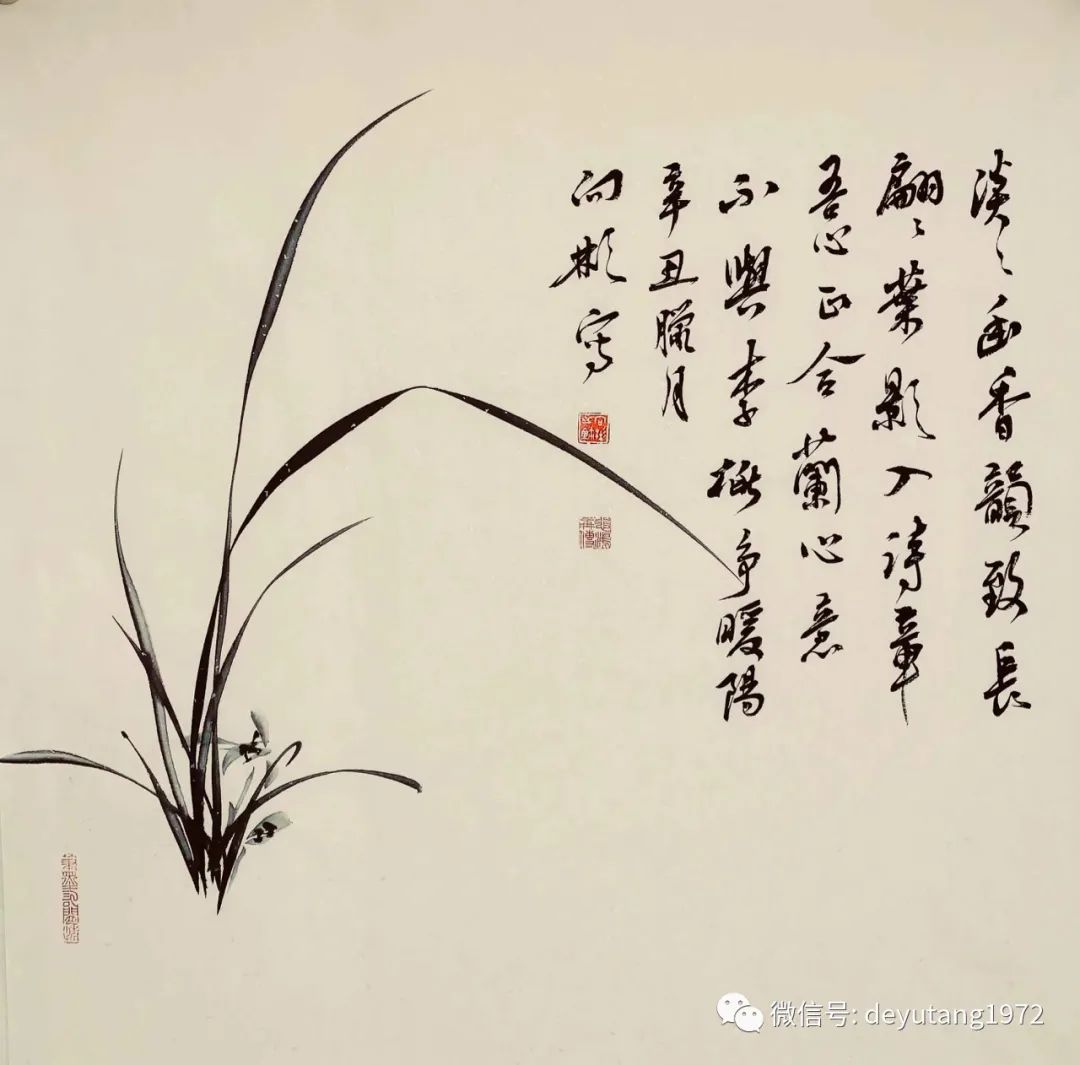 淡〻幽香韻致長
翩〻葉影入诗章
吾心正合蘭心意
不與李桃争暖陽
辛丑臘月
彬寫
微信号: deyutang1972